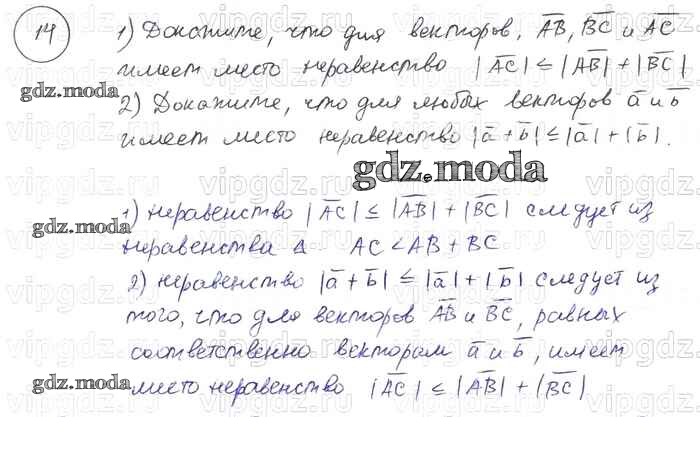 14
1) Докажите, что для векторов, A̅B̅, B̅C̅ и A̅C̅
имеет место неравенство |A̅C̅| ≤ |A̅B̅| + |B̅C̅|
gdz.moda
2) Докажите, что для любых векторов a̅ и b̅
имеет место неравенство |a̅ + b̅| ≤ |a̅| + |b̅|.
gdz.moda
1) неравенство |A̅C̅| ≤ |A̅B̅| + |B̅C̅| следует из
gdz.moda
неравенства Δ AC < AB + BC
2) неравенство |a̅ + b̅| ≤ |a̅| + |b̅| следует из
того, что для векторов A̅B̅ и B̅C̅, равных
соответственно векторам a̅ и b̅, имеет
gdz.moda
место неравенство |A̅C̅| ≤ |A̅B̅| + |B̅C̅|
vipgdz.ru